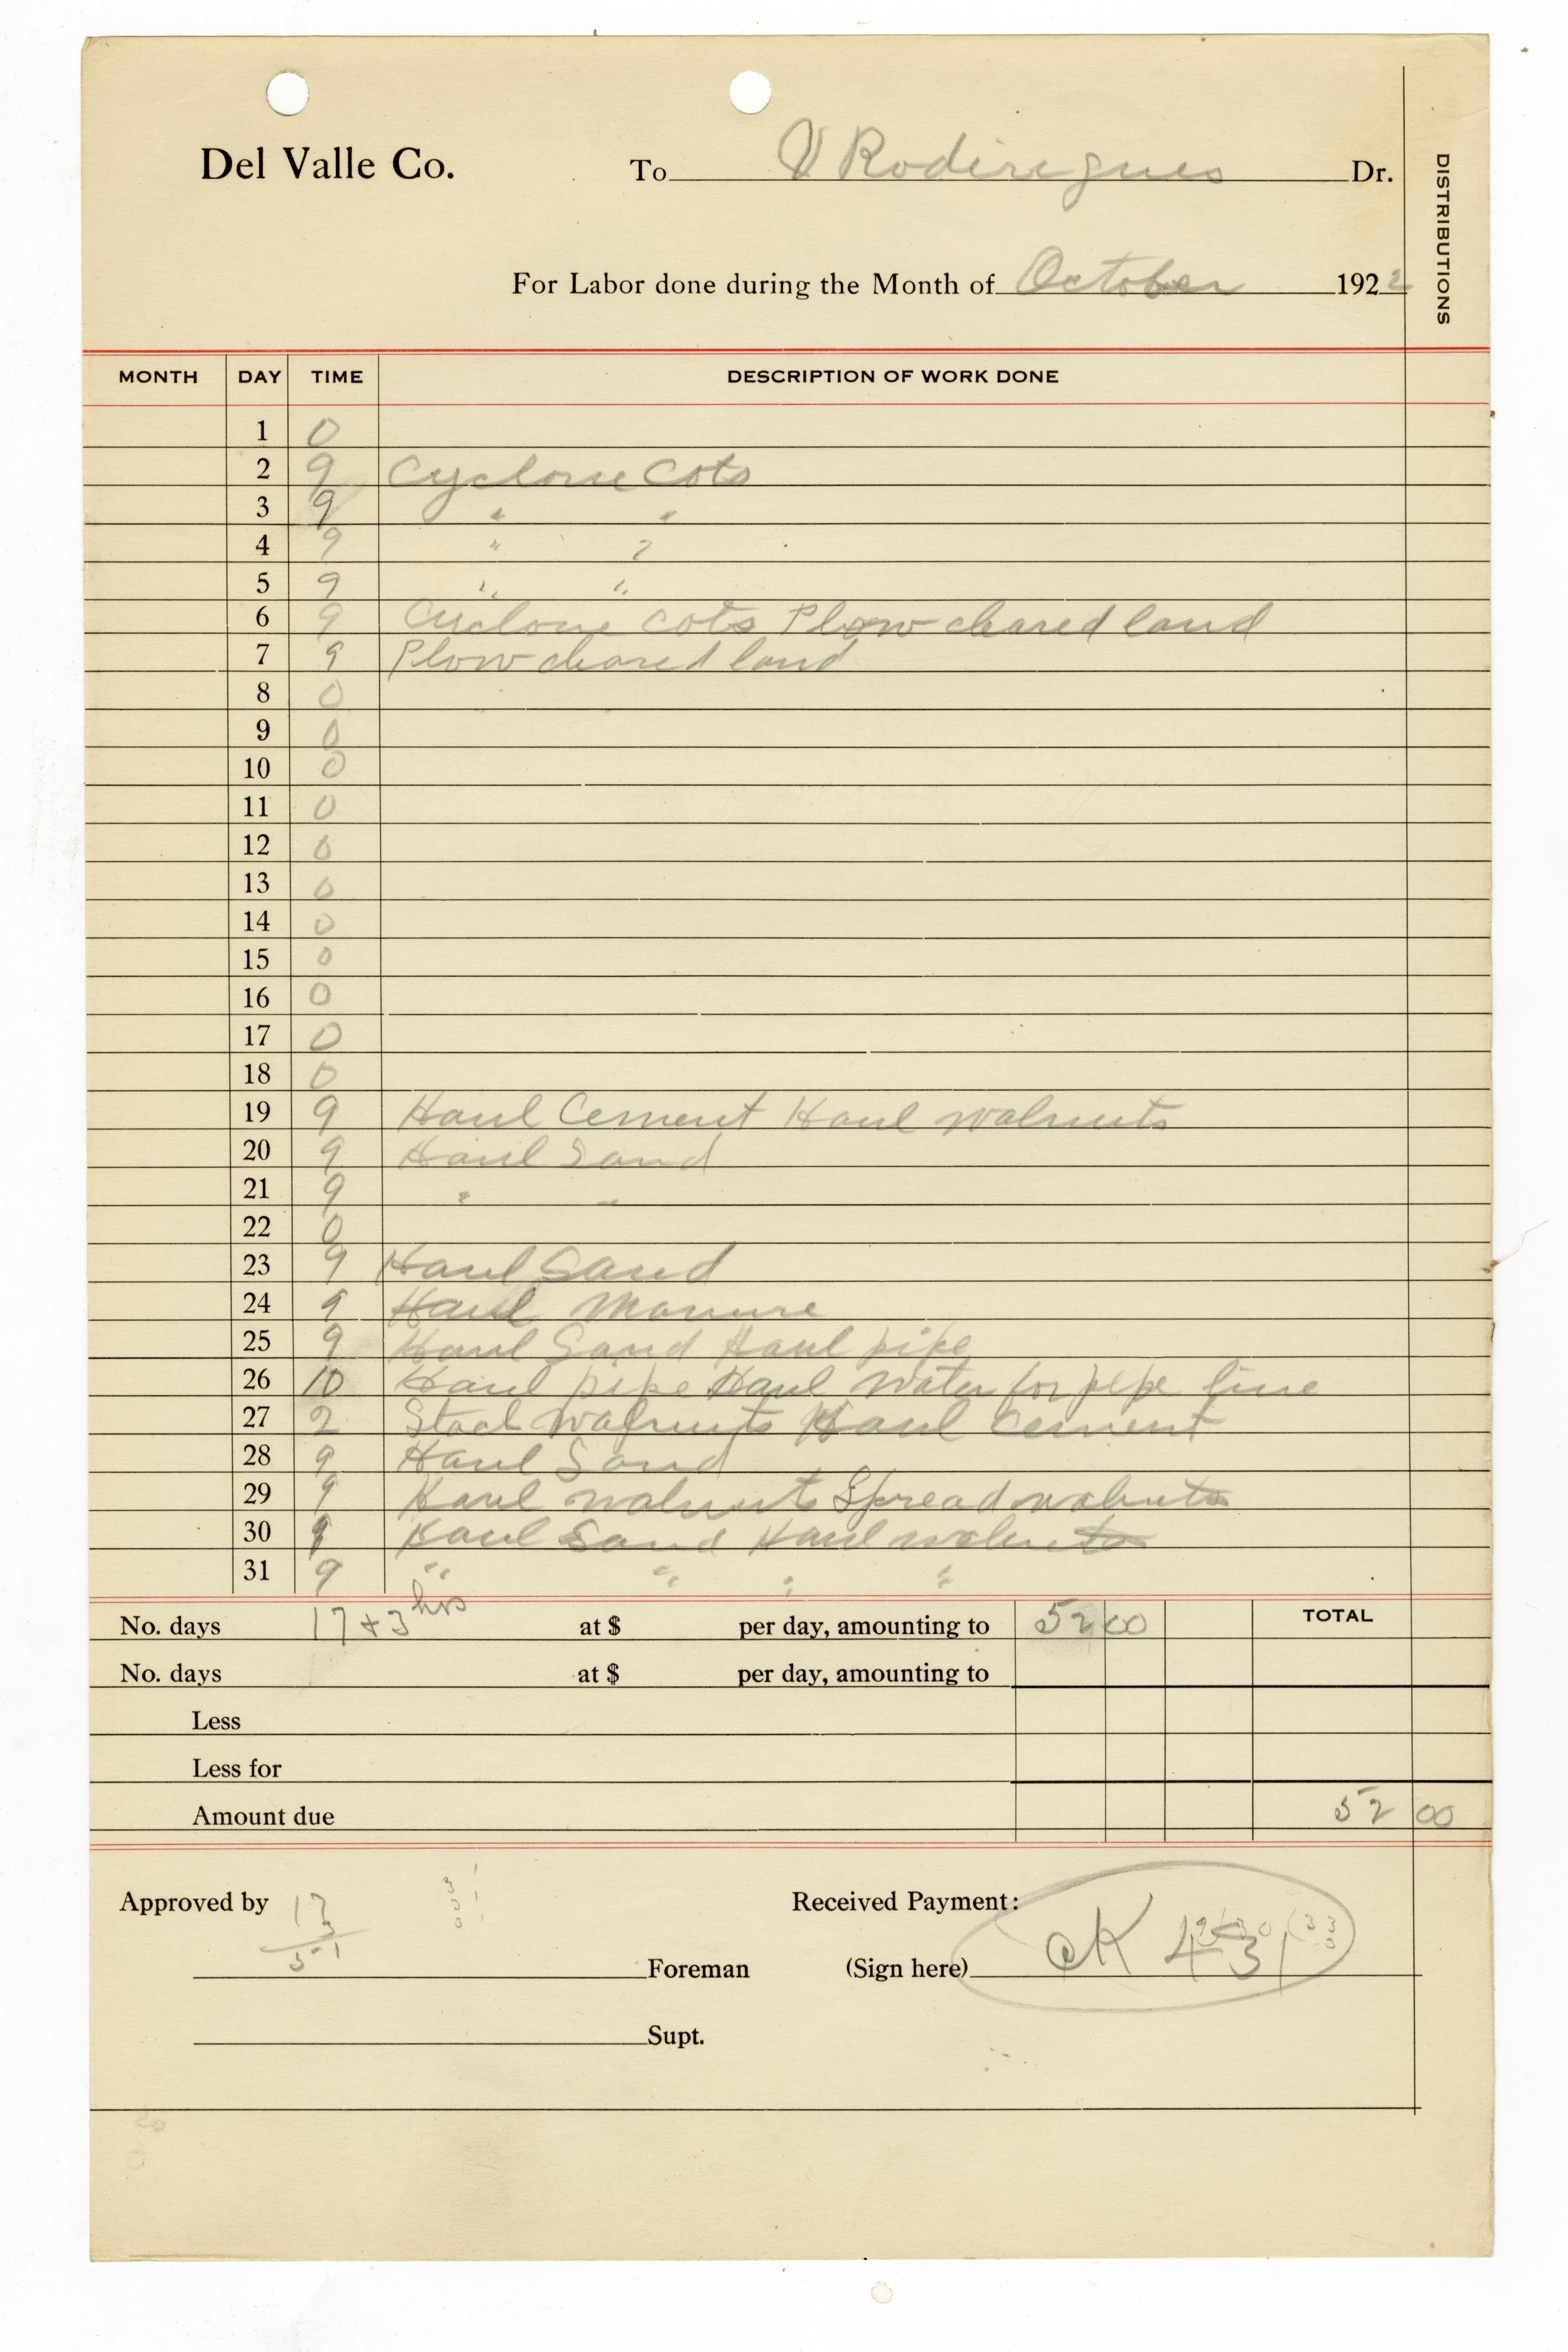 Del Valle Co. To V Rodiregues Dr.
DISTRIBUTIONS
For Labor done during the Month of October 1922
MONTH DAY TIME DESCRIPTION OF WORK DONE
1 0
2 9 Cyclone Cots
3 9 " "
4 9 " "
5 9 " "
6 9 Cyclone Cots Plow cleared land
7 9 Plow cleared land
8 0
9 0
10 0
11 0
12 0
13 0
14 0
15 0
16 0
17 0
18 0
19 9 Haul Cement Haul walnuts
20 9 Haul Sand
21 9 " "
22 0
23 9 Haul Sand
24 9 Haul Manure
25 9 Haul Sand Haul pipe
26 10 Haul pipe Haul water for pipe line
27 2 Stack walnuts Haul Cement
28 9 Haul Sand
29 9 Haul walnuts Spread walnuts
30 9 Haul Sand Haul walnuts
31 9 " " " "
No. days 17 + 3 hrs at $ per day, amounting to 52 00 TOTAL
No. days at $ per day, amounting to
Less
Less for
Amount due 52 00
Approved by Received Payment:
17
3
51
Foreman (Sign here) OK
Supt.